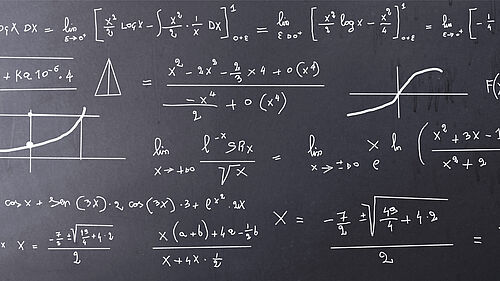 log x dx = lim ε→0⁺ [x²/2 log x - ∫ x²/2 · 1/x dx]¹₀₊ε = lim ε→0⁺ [x²/2 log x - x²/4]¹₀₊ε = lim ε→0⁺ [-1/4
+ Ka 10⁻⁶ · 4
= x² - 2x² - 2/3 x4 + 0(x⁴) / -x⁴/2 + 0(x⁴)
F(
lim x→+∞ l⁻ˣ / √x = lim x→±∞ x ln (x² + 3x - 1 / x² + 2
cos x + sen (3x) · 2 cos (3x) · 3 + ex² · 2x
x = -7/2 ± √49/4 + 4·2 / 2
x (a + b) + 4a - 1/3 b / x + 4x · 1/2
x = -7/2 ± √49/4 + 4·2 / 2 =